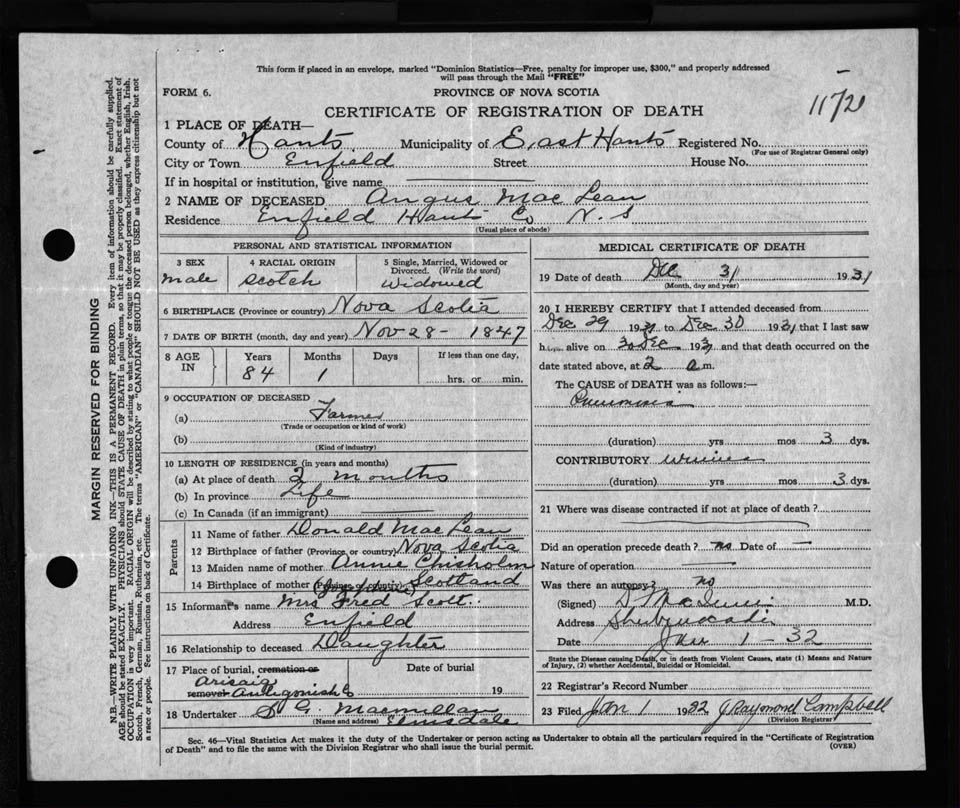 This form if placed in an envelope, marked "Dominion Statistics—Free, penalty for improper use, $300," and properly addressed
will pass through the Mail "FREE"
FORM 6.
PROVINCE OF NOVA SCOTIA
1172
CERTIFICATE OF REGISTRATION OF DEATH
1 PLACE OF DEATH—
County of Hants Municipality of East Hants Registered No.
(For use of Registrar General only)
City or Town Enfield Street House No.
If in hospital or institution, give name
2 NAME OF DECEASED Angus Mac Lean
Residence Enfield Hants Co N. S
(Usual place of abode)
PERSONAL AND STATISTICAL INFORMATION
3 SEX
male
4 RACIAL ORIGIN
Scotch
5 Single, Married, Widowed or
Divorced. (Write the word)
Widowed
6 BIRTHPLACE (Province or country) Nova Scotia
7 DATE OF BIRTH (month, day and year) Nov 28 - 1847
8 AGE
IN
Years
84
Months
1
Days
If less than one day,
hrs. or min.
9 OCCUPATION OF DECEASED
(a) Farmer
(Trade or occupation or kind of work)
(b)
(Kind of industry)
10 LENGTH OF RESIDENCE (in years and months)
(a) At place of death 2 months
(b) In province Life
(c) In Canada (if an immigrant)
Parents
11 Name of father Donald MacLean
12 Birthplace of father (Province or country) Nova Scotia
13 Maiden name of mother Annie Chisholm
14 Birthplace of mother (Province or country) Scotland
15 Informant's name Mrs Fred Scott
Address Enfield
16 Relationship to deceased Daughter
17 Place of burial, cremation or
removal Arisaig
Antigonish Co
Date of burial
19
18 Undertaker S G. Macmillan
(Name and address) Elmsdale
MEDICAL CERTIFICATE OF DEATH
19 Date of death Dec 31 1931
(Month, day and year)
20 I HEREBY CERTIFY that I attended deceased from
Dec 29 1931 to Dec 30 1931 that I last saw
h alive on 30 Dec 1931 and that death occurred on the
date stated above, at 2 a.m.
The CAUSE OF DEATH was as follows:—
Pneumonia
(duration) yrs mos 3 dys.
CONTRIBUTORY
(duration) yrs mos 3 dys.
21 Where was disease contracted if not at place of death?
Did an operation precede death? no Date of —
Nature of operation —
Was there an autopsy? no
(Signed) M.D.
Address Shubenacadie
Date Jan 1 - 32
State the Disease causing Death, or in death from Violent Causes, state (1) Means and Nature
of Injury, (2) whether Accidental, Suicidal or Homicidal.
22 Registrar's Record Number
23 Filed Jan 1 1932 J Raymond Campbell
(Division Registrar)
Sec. 46—Vital Statistics Act makes it the duty of the Undertaker or person acting as Undertaker to obtain all the particulars required in the "Certificate of Registration
of Death" and to file the same with the Division Registrar who shall issue the burial permit.
(OVER)
MARGIN RESERVED FOR BINDING
N.B.—WRITE PLAINLY WITH UNFADING INK—THIS IS A PERMANENT RECORD. Every item of information should be carefully supplied.
AGE should be stated EXACTLY. PHYSICIANS should STATE CAUSE OF DEATH in plain terms, so that it may be properly classified. Exact statement of
OCCUPATION is very important. RACIAL ORIGIN will be described by stating to what people or tongue the deceased person belonged, whether English, Irish,
Scotch, French, German, Russian, Ruthenian, etc. The terms "AMERICAN" or "CANADIAN" SHOULD NOT BE USED as they express citizenship but not
a race or people. See instructions on back of Certificate.